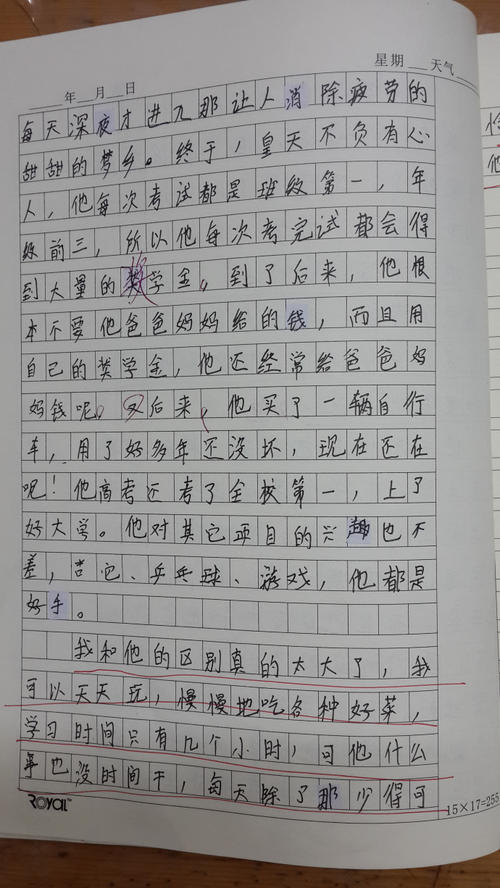 年 月 日 星期 天气
每天深夜才进入那让人消除疲劳的
甜甜的梦乡。终于,皇天不负有心
人,他每次考试都是班级第一,年
级前三,所以他每次考完试都会得
到大量的奖学金。到了后来,他根
本不要他爸爸妈妈给的钱,而且用
自己的奖学金,他还经常给爸爸妈
妈钱呢。又后来,他买了一辆自行
车,用了好多年还没坏,现在还在
呢!他高考还考了全校第一,上了
好大学。他对其它项目的兴趣也不
差,吉它、乒乓球、游戏,他都是
好手。
我和他的区别真的太大了,我
可以天天玩,慢慢地吃各种好菜,
学习时间只有几个小时,可他什么
事也没时间干,每天除了那少得可
ROYAL
15×17=255